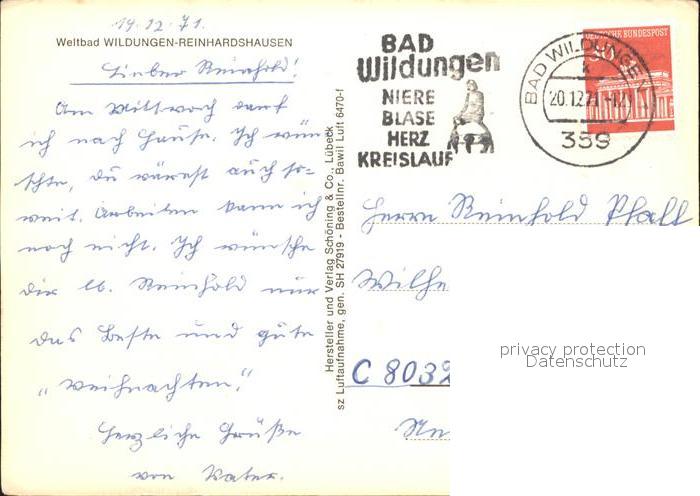 19.12.71.
Weltbad WILDUNGEN-REINHARDSHAUSEN
Lieber Reinhold!
Am Mittwoch darf
ich nach Hause. Ich wün
schte, du wärest auch so-
weit. Arbeiten kann ich
noch nicht. Ich wünsche
Dir lb. Reinhold nur
das Beste und gute
"Weihnachten."
Herzliche Grüße
von Vater.
Hersteller und Verlag Schöning & Co., Lübeck
sz Luftaufnahme, gen. SH 27919 - Bestellnr. Bawil Luft 6470-f
BAD
Wildungen
NIERE
BLASE
HERZ
KREISLAUF
BAD WILDUNGEN
k
20.12.71-12
359
DEUTSCHE BUNDESPOST
30
Herrn Reinhold Pfall
Wilhe
C 8032
Ne
privacy protection
Datenschutz